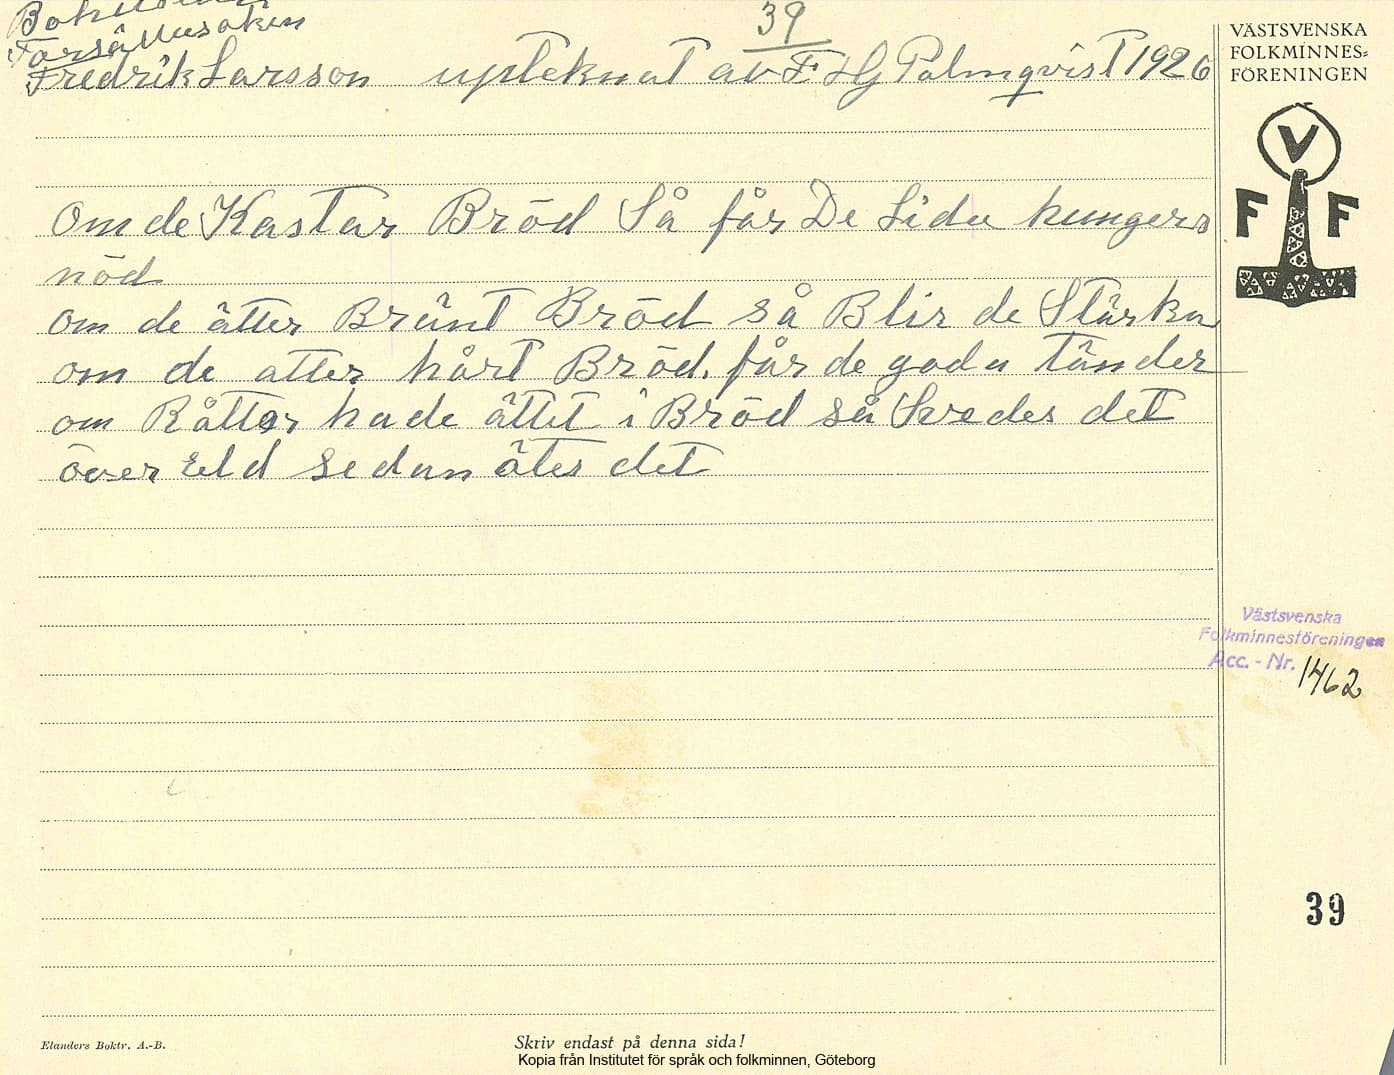 39
Bohuslän
Forshällasoken
Fredrik Larsson upteknat av F HJ Palmqvist 1926
om de Kastar Bröd Så får De Lida hungers
nöd
om de ätter Bränt Bröd så Blir de Stärka
om de ätter hårt Bröd. får de goda tänder
om Råttor hade ättit i Bröd så Svedes det
över Eld sedan ätes det
VÄSTSVENSKA
FOLKMINNES-
FÖRENINGEN
V
F F
Västsvenska
Folkminnesföreningen
Acc. - Nr. 1462
39
Elanders Boktr. A.-B.
Skriv endast på denna sida!
Kopia från Institutet för språk och folkminnen, Göteborg